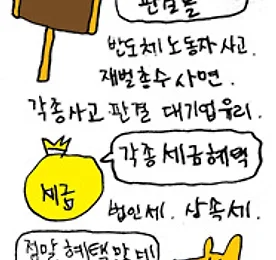 판결들
반도체 노동자 사고.
재벌총수 사면.
각종사고 판결 대기업유리.
각종 세금혜택
세금
법인세. 상속세.
정말 혜택 많네